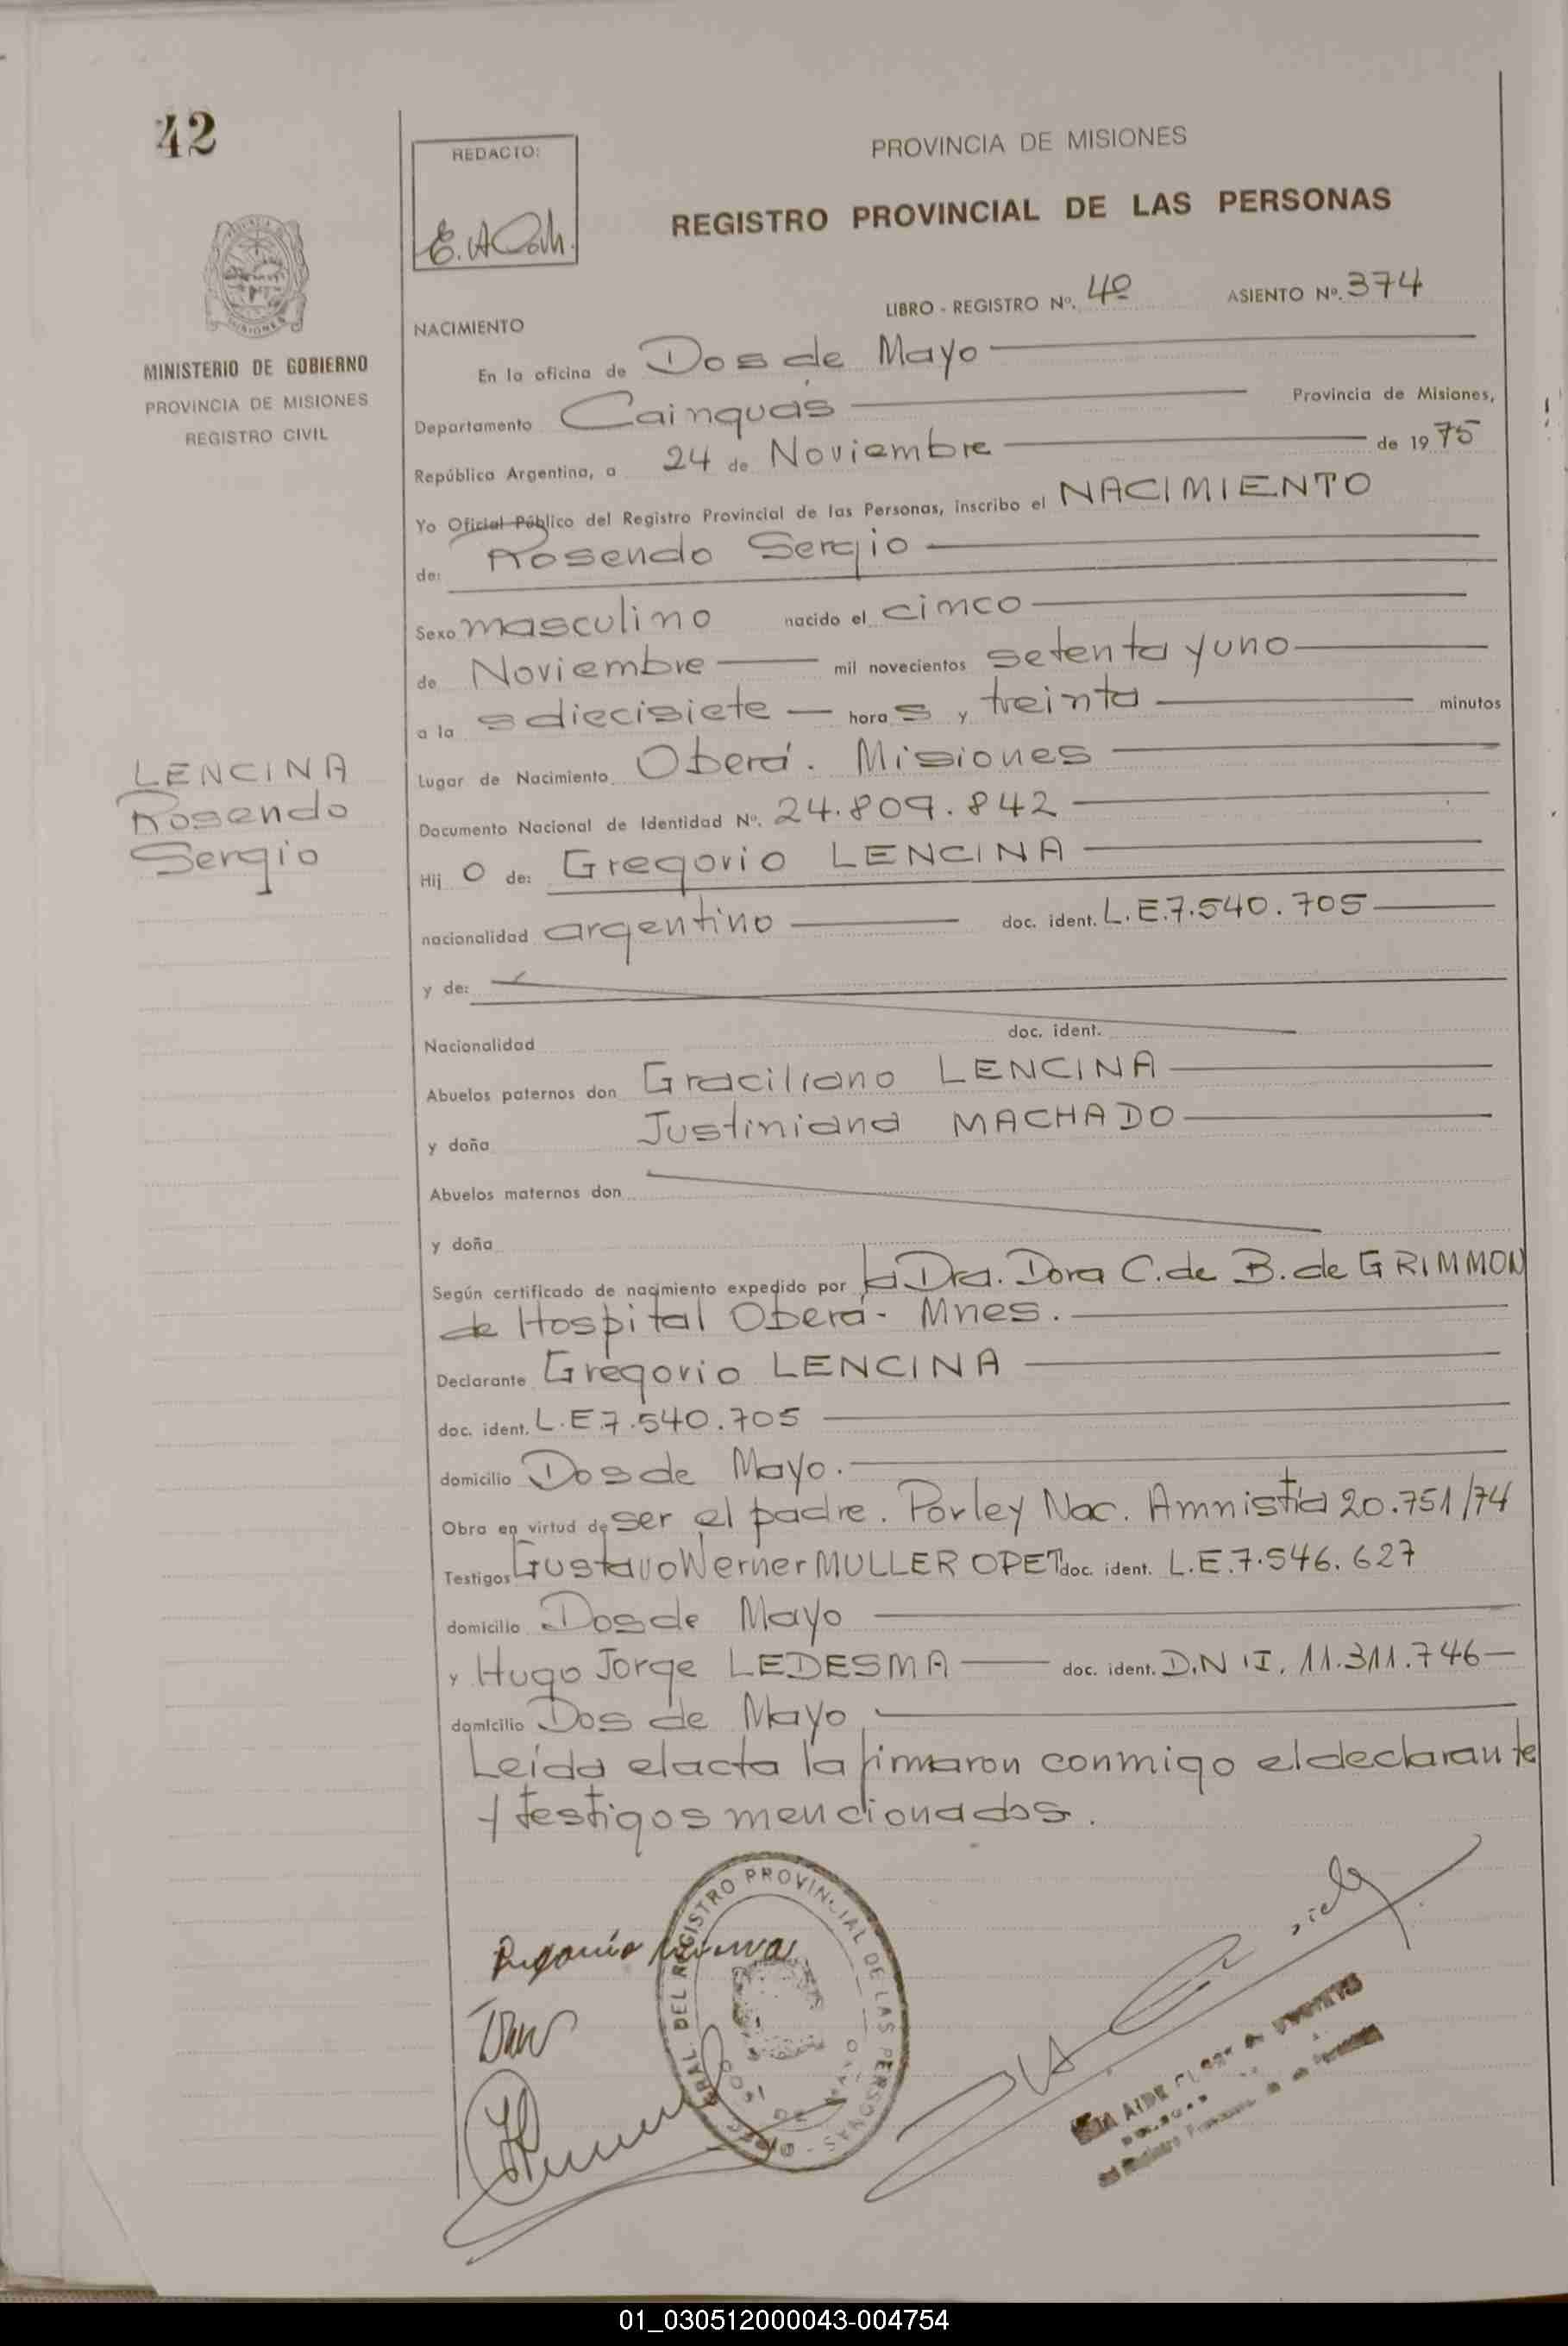 42
REDACTO:
PROVINCIA DE MISIONES
REGISTRO PROVINCIAL DE LAS PERSONAS
MINISTERIO DE GOBIERNO
PROVINCIA DE MISIONES
REGISTRO CIVIL
LIBRO - REGISTRO Nº. 4º ASIENTO Nº. 374
NACIMIENTO
En la oficina de Dos de Mayo
Departamento Cainguás Provincia de Misiones,
República Argentina, a 24 de Noviembre de 1975
Yo Oficial Público del Registro Provincial de las Personas, inscribo el NACIMIENTO
de: Rosendo Sergio
Sexo masculino nacido el cinco
de Noviembre mil novecientos setenta y uno
a la s diecisiete hora s y treinta minutos
Lugar de Nacimiento Oberá. Misiones
LENCINA
Rosendo
Sergio
Documento Nacional de Identidad Nº. 24.809.842
Hij o de: Gregorio LENCINA
nacionalidad argentino doc. ident. L.E.7.540.705
y de:
Nacionalidad doc. ident.
Abuelos paternos don Graciliano LENCINA
y doña Justiniana MACHADO
Abuelos maternos don
y doña
Según certificado de nacimiento expedido por la Dra. Dora C. de B. de GRIMMON
de Hospital Oberá - Mnes.
Declarante Gregorio LENCINA
doc. ident. L.E.7.540.705
domicilio Dos de Mayo.
Obra en virtud de ser el padre. Por ley Nac. Amnistía 20.751/74
Testigos Gustavo Werner MULLER OPET doc. ident. L.E.7.546.627
domicilio Dos de Mayo
y Hugo Jorge LEDESMA doc. ident. D.N.I. 11.311.746
domicilio Dos de Mayo
Leída el acta la firmaron conmigo el declarante
y testigos mencionados.
DEL REGISTRO PROVINCIAL DE LAS PERSONAS
01_030512000043-004754